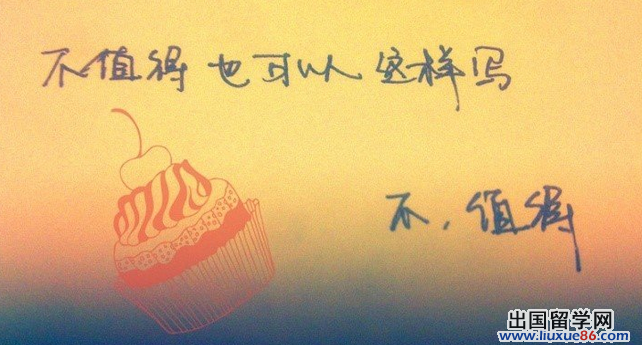 不值得也可以这样写
不，值得
出国留学网
www.liuxue86.com